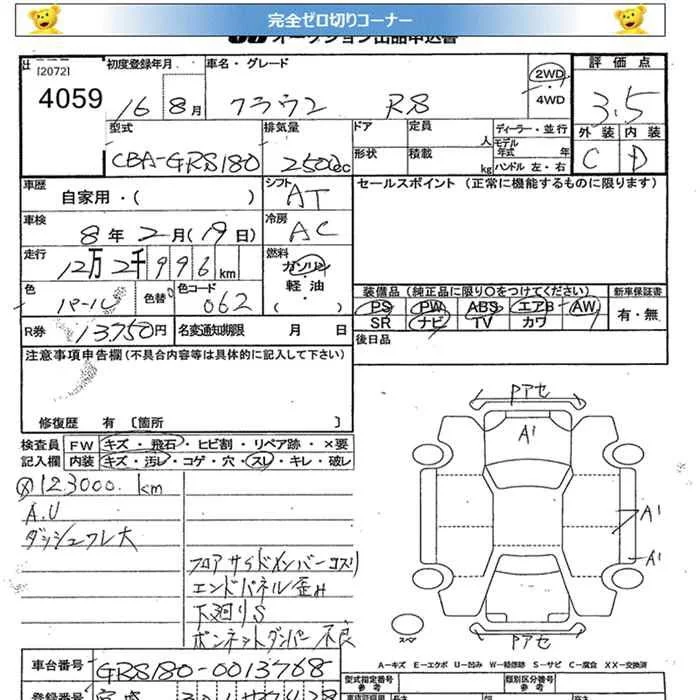 完全ゼロ切りコーナー
オークション出品申込書
[2072]
4059
初度登録年月
16 8月
車名・グレード
クラウン RS
2WD
4WD
評価点
3.5
外装 内装
C D
型式
CBA-GRS180
排気量
2500cc
ドア
形状
定員 人
積載 kg
ディーラー・並行
モデル年式 年
ハンドル 左・右
車歴
自家用・( )
シフト
AT
セールスポイント(正常に機能するものに限ります)
車検
8年2月(19日)
冷房
AC
走行
12万2千996km
燃料
ガソリン
軽油
( )
色
パール
色替
色コード
062
装備品(純正品に限り○をつけてください)
PS PW ABS エアB AW
SR ナビ TV カワ
新車保証書
有・無
R券
13750円
名変通知期限 月 日
後日品
注意事項申告欄(不具合内容等は具体的に記入して下さい)
修復歴 有 [箇所 ]
検査員
記入欄
FW キズ・飛石・ヒビ割・リペア跡・×要
内装 キズ・汚レ・コゲ・穴・スレ・キレ・破レ
123000km
A.U
ダッシュワレ大
フロアサイドメンバーコスリ
エンドパネル歪み
下廻りS
ボンネットダンパー不良
Pアセ
A1
A1
A1
Pアセ
スペア
A−キズ E−エクボ U−凹み W−補修跡 S−サビ C−腐食 XX−交換済
車台番号
GRS180-0013768
型式指定番号
参考
類別区分番号
参考
登録番号
長さ
幅
高さ